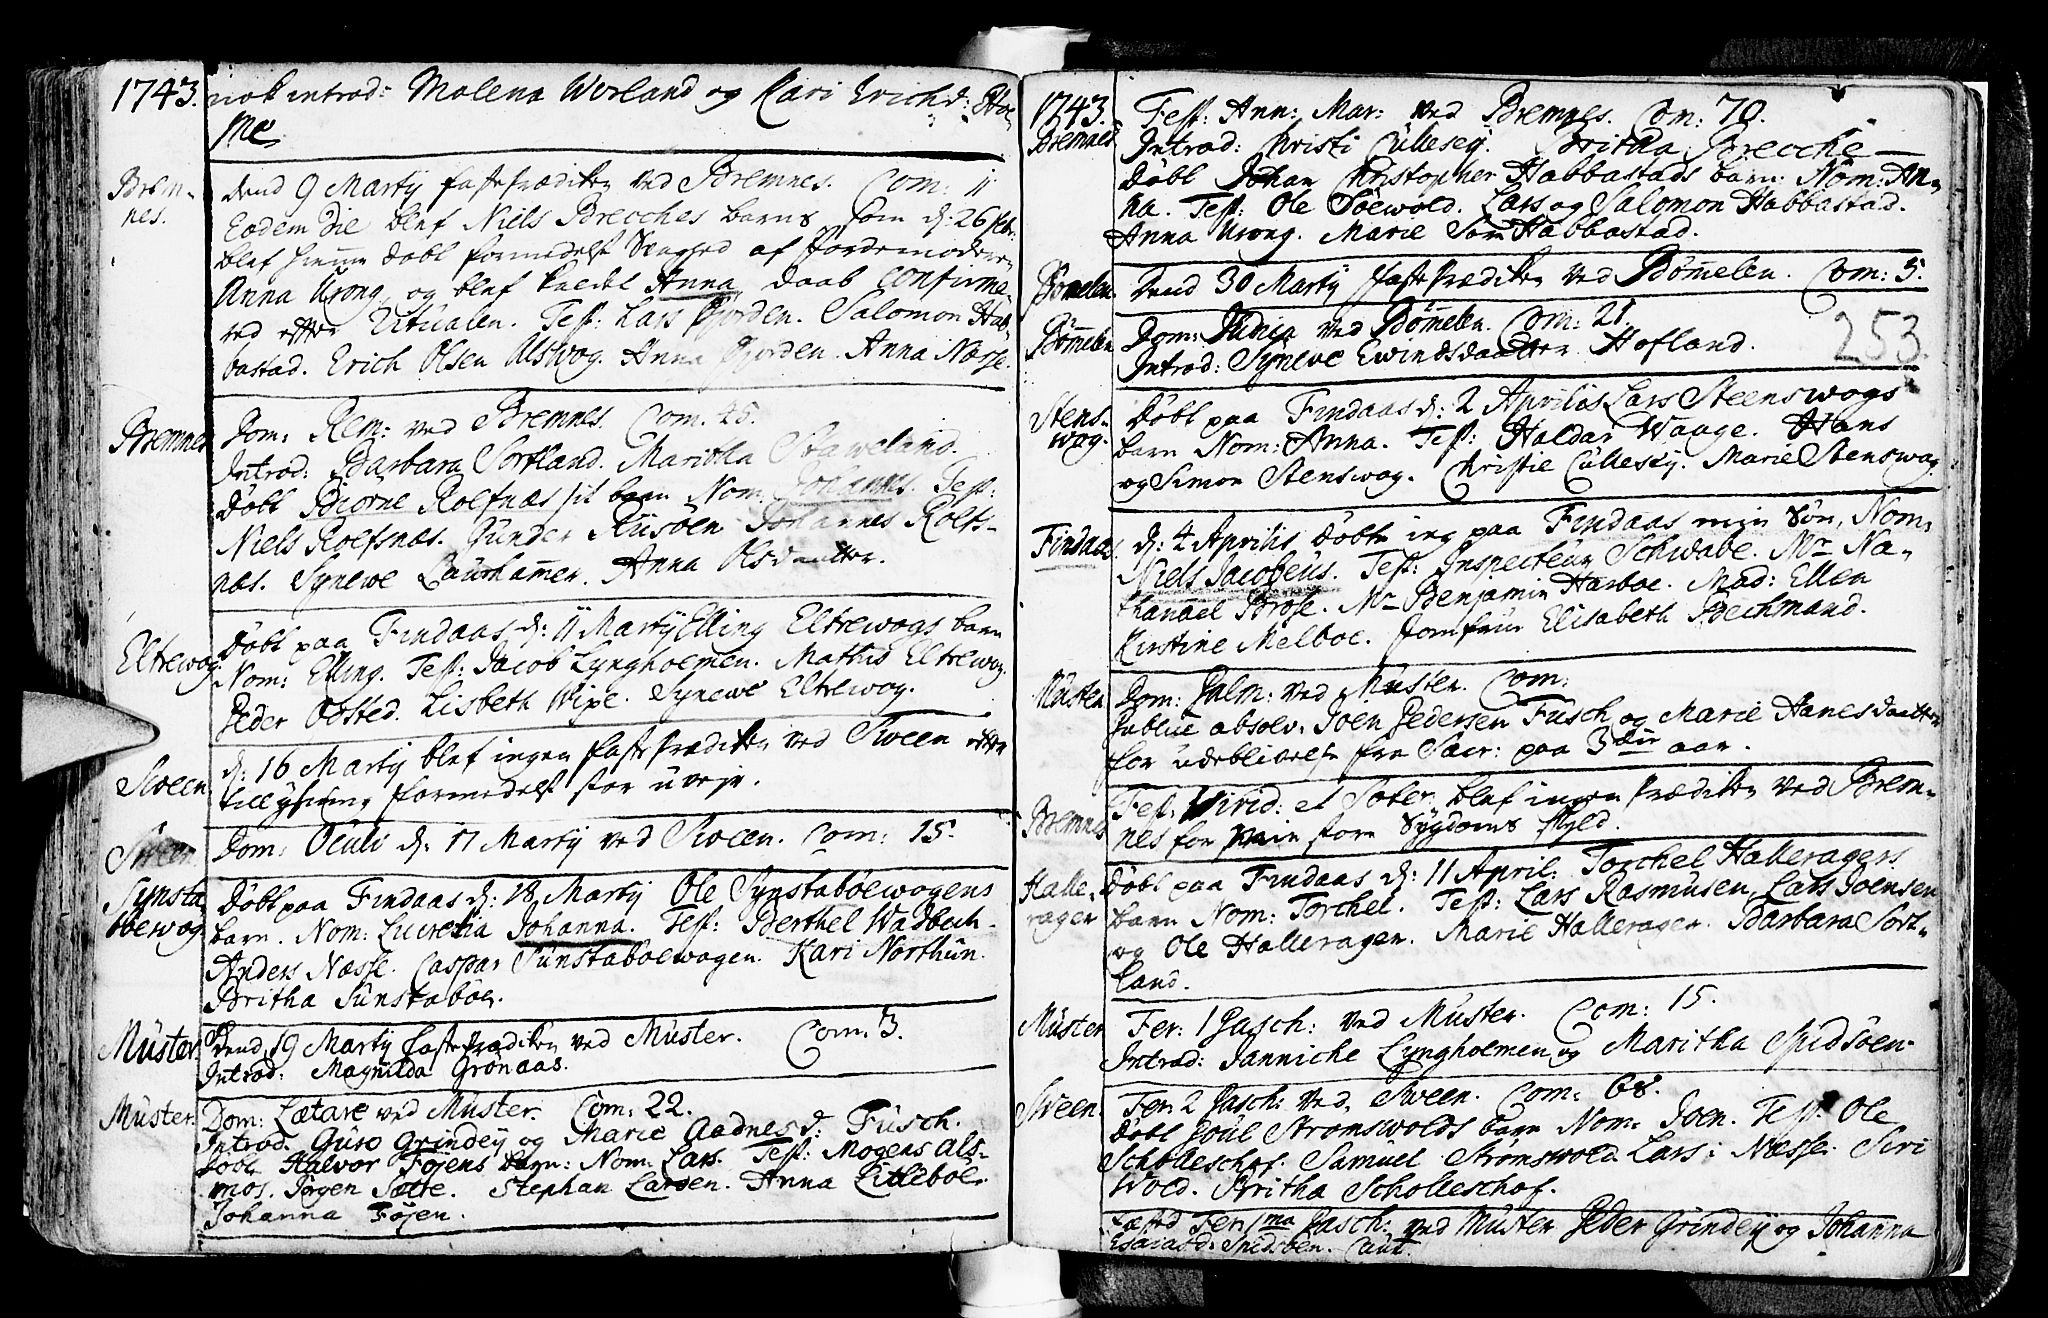 1743. nok introd: Malena Werland og Kari Erichd: Hol-
me.
Brem-
nes.
dend 9 Martÿ faste Prædiken ved Bremnes. Com: 11
Eodem die blef Niels Brecches barns som d: 26 Febr:
blef hiemme döbt formedelst Svaghed af Jordemoderen
Anna Urong, og blef kaldet Anna, daab confirme-
red efter Ritualen. Test: Lars Gjorden. Salomon Hab-
bastad. Erich Olsen Alswog. Anna Gjorden. Anna Næsse.
Bremnes
Dom: Rem: ved Bremnes. Com: 45.
Introd: Barbara Sortland. Maritha Straweland.
Döbt Biorne Rolfnæs sit barn Nom: Johannes. Test:
Niels Rolfsnæs. Gunder Rüsöen Johannes Rolfs-
næs. Synewe Laurhamer. Anna Olsdaatter.
Eltrewog
Döbt paa Findaas d: 11 Martÿ Elling Eltrewogs barn
Nom: Elling. Test: Jacob Lyngholmen. Mathis Eltrewog.
Peder Opsted. Lisbeth Wipe. Synewe Eltrewog.
Sween
d: 16 Martÿ blef ingen faste Prædiken ved Sween efter
tillysning formedelst stor uvejr.
Sween
Dom: Oculi d: 17 Martÿ ved Sween. Com: 15.
Synsta
böewog
Döbt paa Findaas d: 18 Martÿ Ole Synstaböewogens
barn. Nom: Lucretia Johanna. Test: Berthel Wadbech.
Anders Næsse. Caspar Sünstaböewogen. Kari Northün.
Britha Sünstaböe.
Müster.
Dend 19 Martÿ faste Prædiken ved Müster. Com: 3.
Introd: Magnilda Grönaas.
Müster.
Dom: Lætare ved Müster. Com: 22.
Introd. Guro Grindeÿ og Marie Aadnesd: Fusch.
Döbt Halvor Föjens barn: Nom: Lars. Test: Mogens Als-
mos. Jörgen Sætre. Stephan Larsen. Anna Litleböe.
Johanna Föjen.
1743.
Bremnes
Fest: Ann: Mar: ved Bremnes. Com: 70.
Introd: Christi Cullesej. Britha Brecche
Döbt Johan Christopher Habbastads barn: Nom: An-
na. Test: Ole Söewold. Lars og Salomon Habbastad.
Anna Urong. Marie Habbastad.
Bömelen.
Dend 30 Martÿ faste Prædiken ved Bömmelen. Com: 5.
Bömmelen
Dom: Judica ved Bömmelen. Com: 21.
Introd: Synewe Ewindsdaatter Hofland.
253.
Stens-
wog.
Döbt paa Findaas d: 2 Aprilis Lars Steenswogs
barn Nom: Anna. Test: Haldar Waage. Hans
og Simon Stenswog. Christie Cullesej. Marie Stenswog.
Findaas.
d: 4 Aprilis döbte jeg paa Findaas min Sön, Nom:
Niels Jacobæus. Test: Inspecteur Schwabe. Mr Na-
thanael Brose. Mr Benjamin Harboe. Mad: Ellen
Kirstine Melboe. Jomfrue Elisabeth Bechmand.
Müster
Dom: Palm: ved Müster. Com:
Publice absolv: Joen Pedersen Fusch og Marie Hanesdaatter
for udeblivelse fra Sacr: paa 3die aar.
Bremnes
Fest: Virid: et Soter. blef ingen Prædiken ved Brem-
nes for min store Sÿgdoms skyld.
Halle-
rager
Döbt paa Findaas d: 11 April: Torchel Halleragers
barn Nom: Torchel. Test: Lars Rasmusen, Lars Joensen
og Ole Halleragen. Marie Halleragen. Barbara Sort-
land.
Müster
Fer: 1 Pasch: ved Müster. Com: 15.
Introd: Jannicke Lyngholmen og Maritha Spidsöen.
Sween.
Fer: 2 Pasch: ved Sween. Com: 68.
Döbt Poul Strömswolds barn Nom: Joen. Test: Ole
Scholleschof. Samuel Strömswold. Lars: Næsse. Siri
Wold. Britha Scholleschof.
Fæsted Fer: 1ma Pasch: ved Müster Peder Grindeÿ og Johanna
Esaiasd: Spidsöen. Caut.